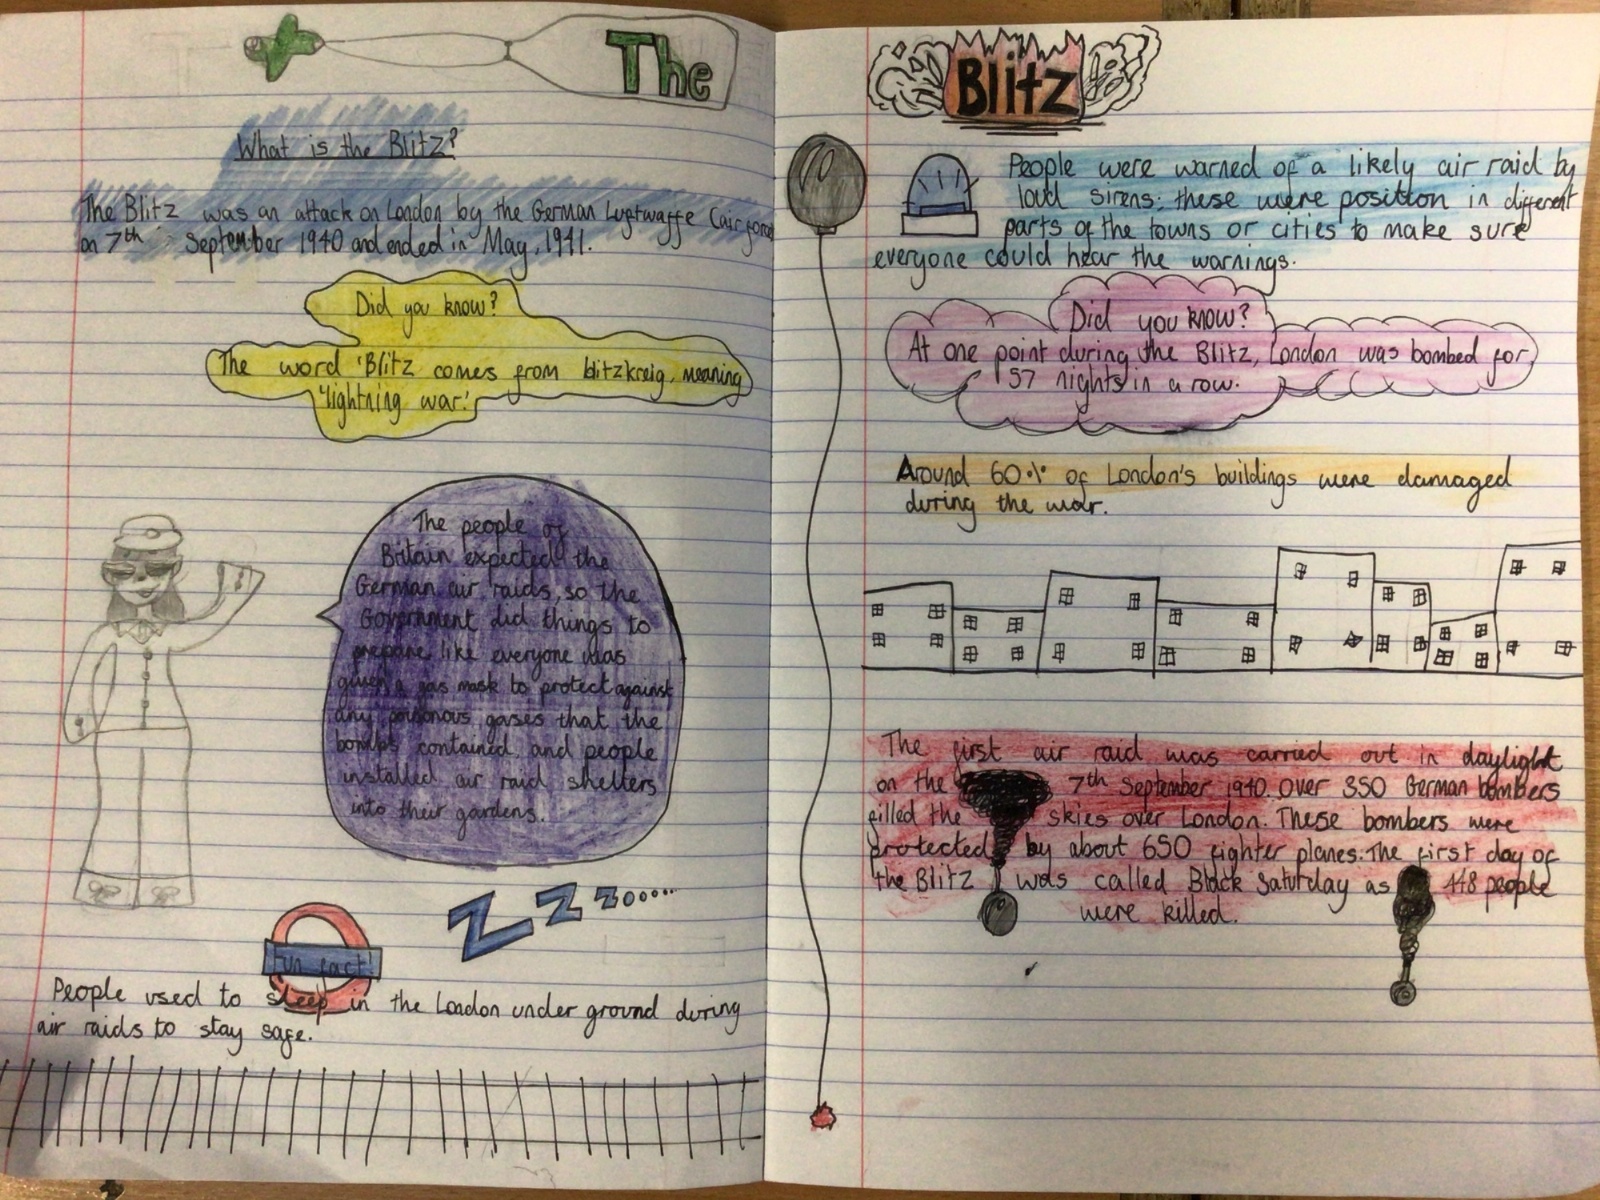 The
What is the Blitz?
The Blitz was an attack on London by the German Luftwaffe (air force
on 7th September 1940 and ended in May, 1941.
Did you know?
The word 'Blitz comes from blitzkreig, meaning
'lightning war.'
The people of
Britain expected the
German air raids, so the
Government did things to
prepare, like everyone was
given a gas mask to protect against
any poisonous gases that the
bombs contained, and people
installed air raid shelters
into their gardens.
ZZZ.....
Fun fact!
People used to sleep in the London under ground during
air raids to stay safe.
Blitz
People were warned of a likely air raid by
loud sirens; these were position in different
parts of the towns or cities to make sure
everyone could hear the warnings.
Did you know?
At one point during the Blitz, London was bombed for
57 nights in a row.
Around 60% of London's buildings were damaged
during the war.
The first air raid was carried out in daylight
on the 7th September 1940. Over 350 German bombers
filled the skies over London. These bombers were
protected by about 650 fighter planes. The first day of
the Blitz was called Black Saturday as 448 people
were killed.